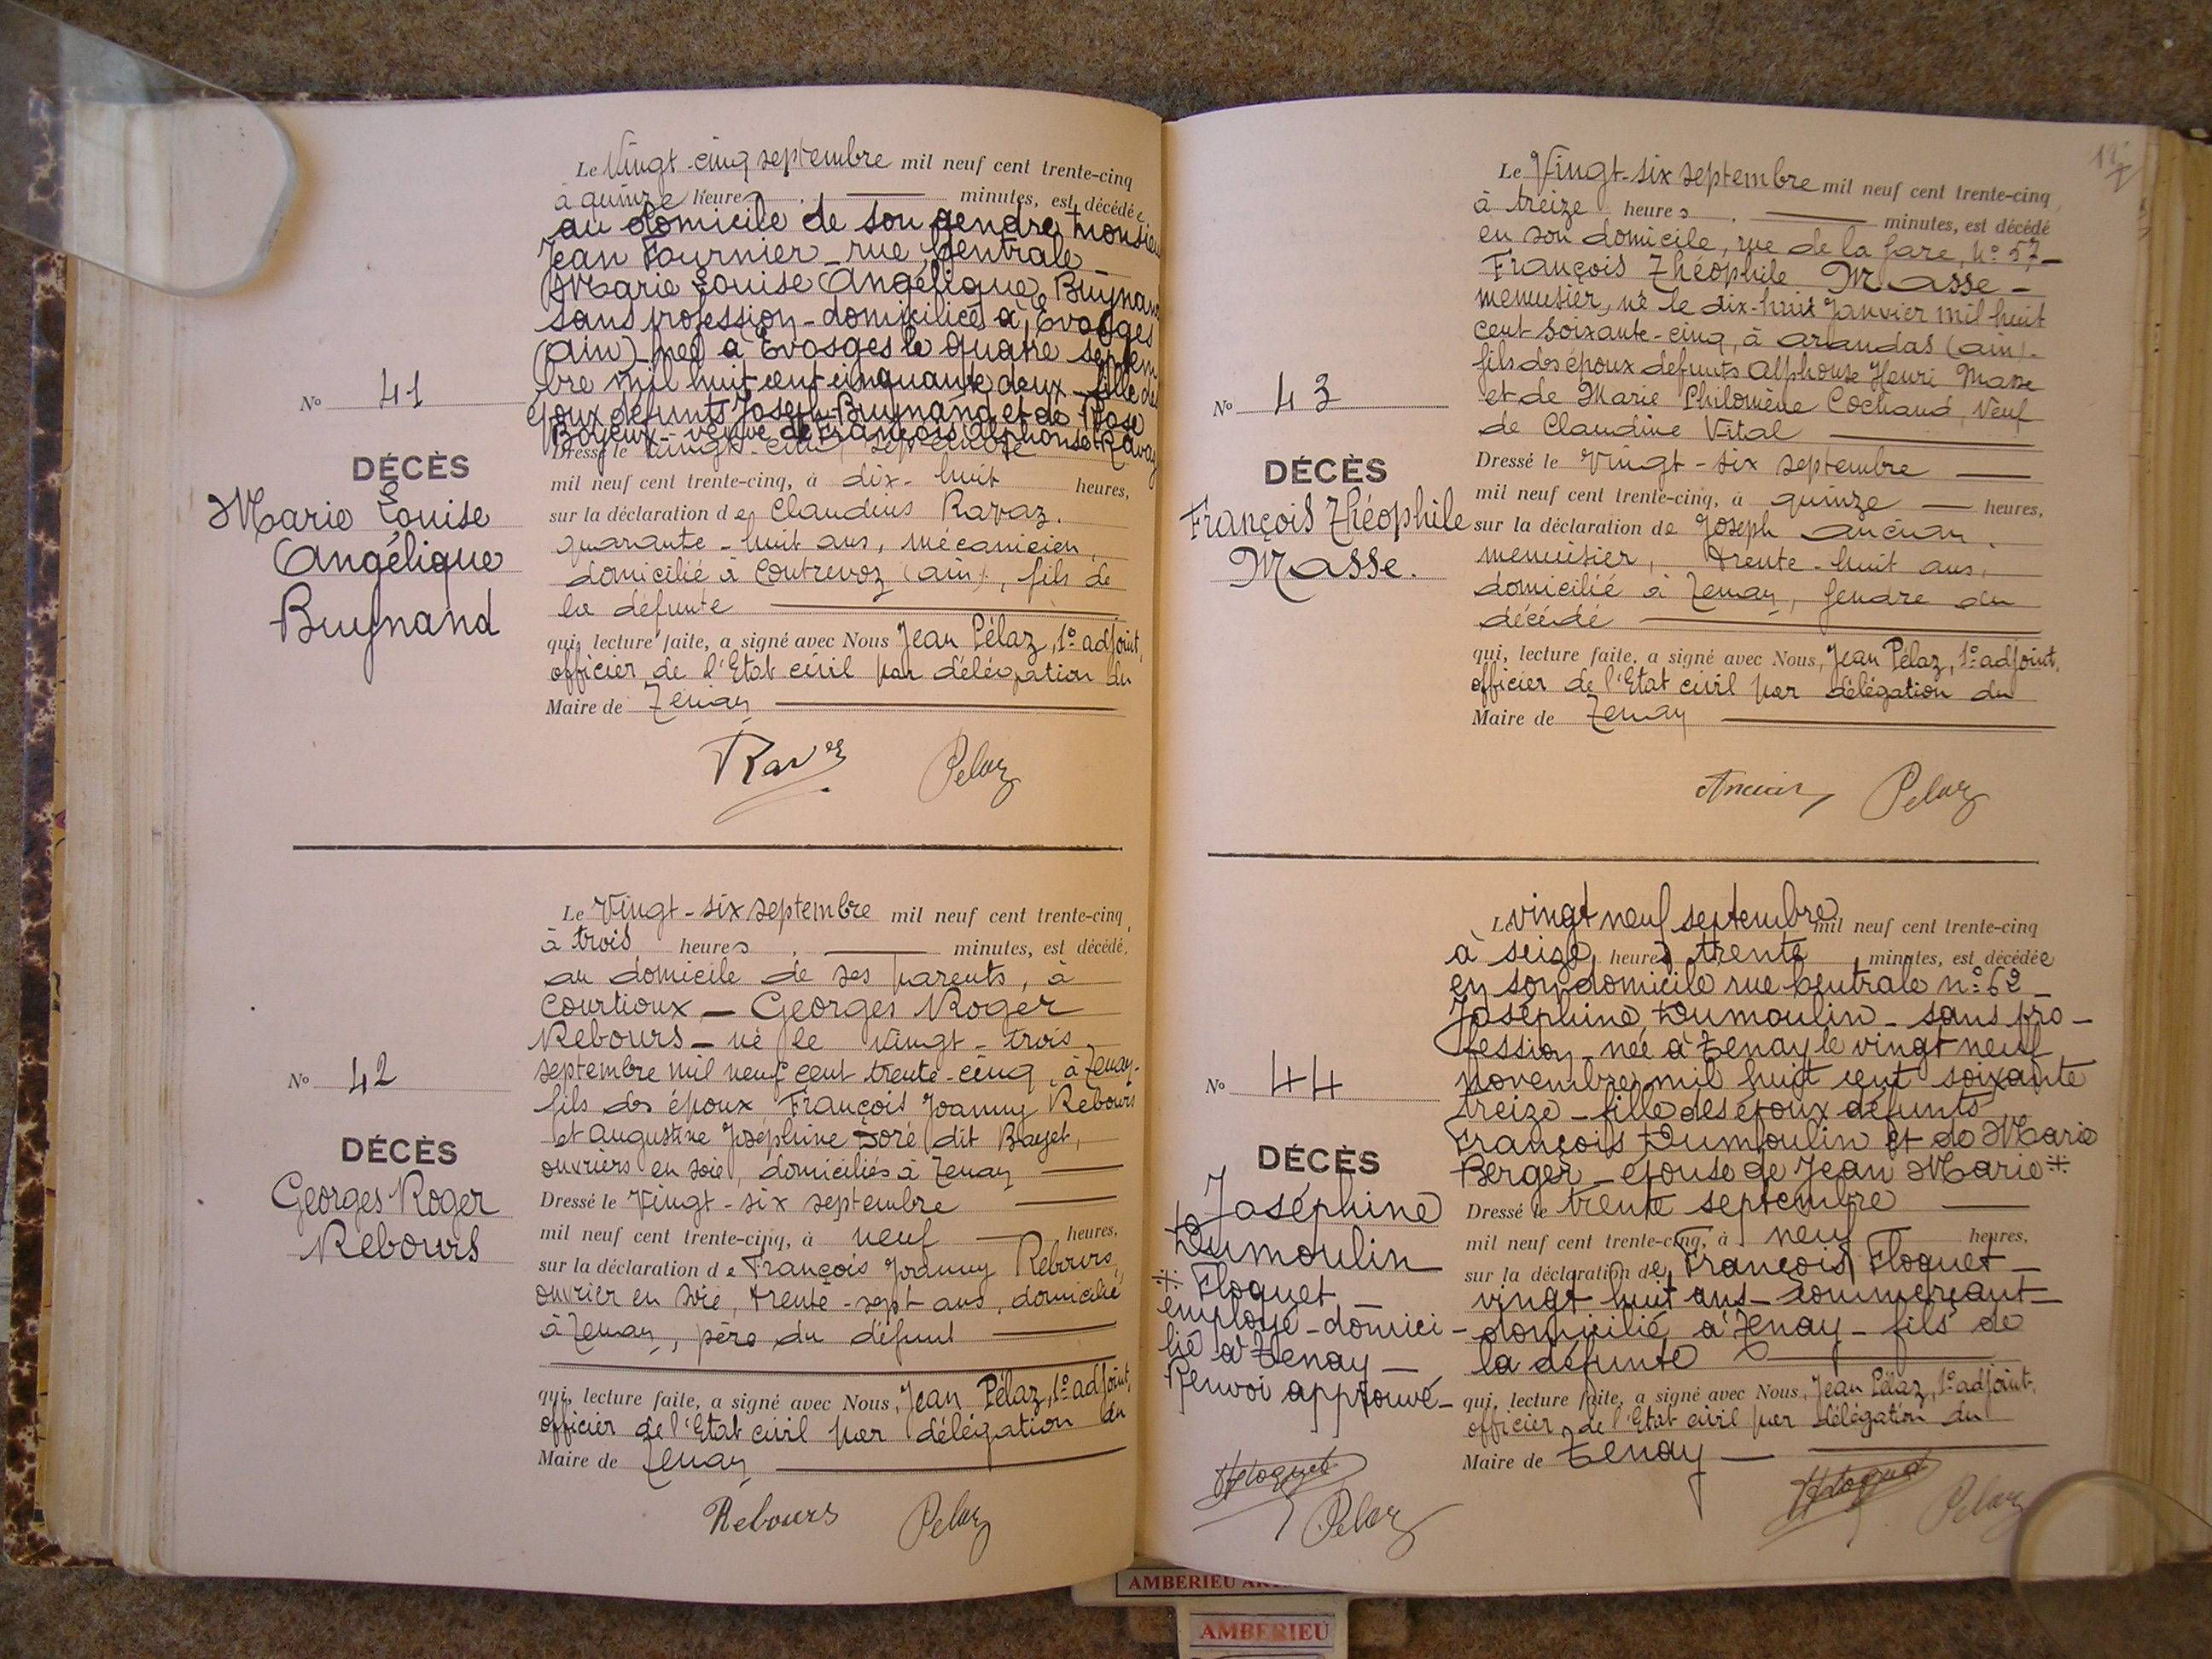 Le Vingt-cinq septembre mil neuf cent trente-cinq
à quinze heures, ——— minutes, est décédée
au domicile de son gendre Monsieu
Jean Fournier - rue Centrale -
Marie Louise Angélique Buynand
sans profession - domiciliée à Evosges
(Ain) née à Evosges le quatre septem
bre mil huit cent cinquante deux - fille des
époux défunts Joseph Buynand et de Rose
Boyeux - veuve de François Alphonse Ravaz
Nº 41
DÉCÈS
Marie Louise
Angélique
Buynand
Dressé le vingt-cinq septembre
mil neuf cent trente-cinq, à dix-huit heures,
sur la déclaration de Claudius Ravaz,
quarante-huit ans, mécanicien,
domicilié à Contrevoz (Ain), fils de
la défunte
qui, lecture faite, a signé avec Nous Jean Pélaz, 1º adjoint,
officier de l'Etat civil par délégation du
Maire de Tenay
Ravaz Pelaz
Le Vingt-six septembre mil neuf cent trente-cinq
à trois heures, ——— minutes, est décédé,
au domicile de ses parents, à
Courtioux — Georges Roger
Rebours — né le vingt-trois
septembre mil neuf cent trente-cinq, à Tenay-
fils des époux François Joanny Rebours
et Augustine Joséphine Doré dit Bayet,
ouvriers en soie, domiciliés à Tenay
Nº 42
DÉCÈS
Georges Roger
Rebours
Dressé le vingt-six septembre
mil neuf cent trente-cinq, à neuf heures,
sur la déclaration de François Joanny Rebours,
ouvrier en soie, trente-sept ans, domicilié
à Tenay, père du défunt
qui, lecture faite, a signé avec Nous, Jean Pélaz, 1º adjoint,
officier de l'Etat civil par délégation du
Maire de Tenay
Rebours Pelaz
Le Vingt-six septembre mil neuf cent trente-cinq
à treize heures, ——— minutes, est décédé
en son domicile, rue de la gare, nº 57 -
François Théophile Masse -
menuisier, né le dix-huit Janvier mil huit
cent soixante-cinq, à Arandas (Ain) -
fils des époux défunts Alphonse Henri Masse
et de Marie Philomène Cochaud, Veuf
de Claudine Vital
Nº 43
DÉCÈS
François Théophile
Masse.
Dressé le vingt-six septembre
mil neuf cent trente-cinq, à quinze heures,
sur la déclaration de Joseph Ancian,
menuisier, trente-huit ans,
domicilié à Tenay, gendre du
décédé
qui, lecture faite, a signé avec Nous, Jean Pélaz, 1º adjoint,
officier de l'Etat civil par délégation du
Maire de Tenay
Ancian Pelaz
Le vingt neuf septembre mil neuf cent trente-cinq
à seize heures trente minutes, est décédée
en son domicile rue Centrale nº 62 -
Joséphine Dumoulin - sans pro-
fession - née à Tenay le vingt neuf
novembre mil huit cent soixante
treize - fille des époux défunts
François Dumoulin et de Marie
Berger - épouse de Jean Marie ⁜
Nº 44
DÉCÈS
Joséphine
Dumoulin
⁜ Floquet
employé - domici-
lié à Tenay —
Renvoi approuvé -
Floquet Pelaz
Dressé le trente septembre
mil neuf cent trente-cinq, à neuf heures,
sur la déclaration de François Floquet -
vingt huit ans - commerçant -
domicilié à Tenay - fils de
la défunte
qui, lecture faite, a signé avec Nous, Jean Pélaz, 1º adjoint,
officier de l'Etat civil par délégation du
Maire de Tenay —
Floquet Pelaz
AMBERIEU
AMBERIEU